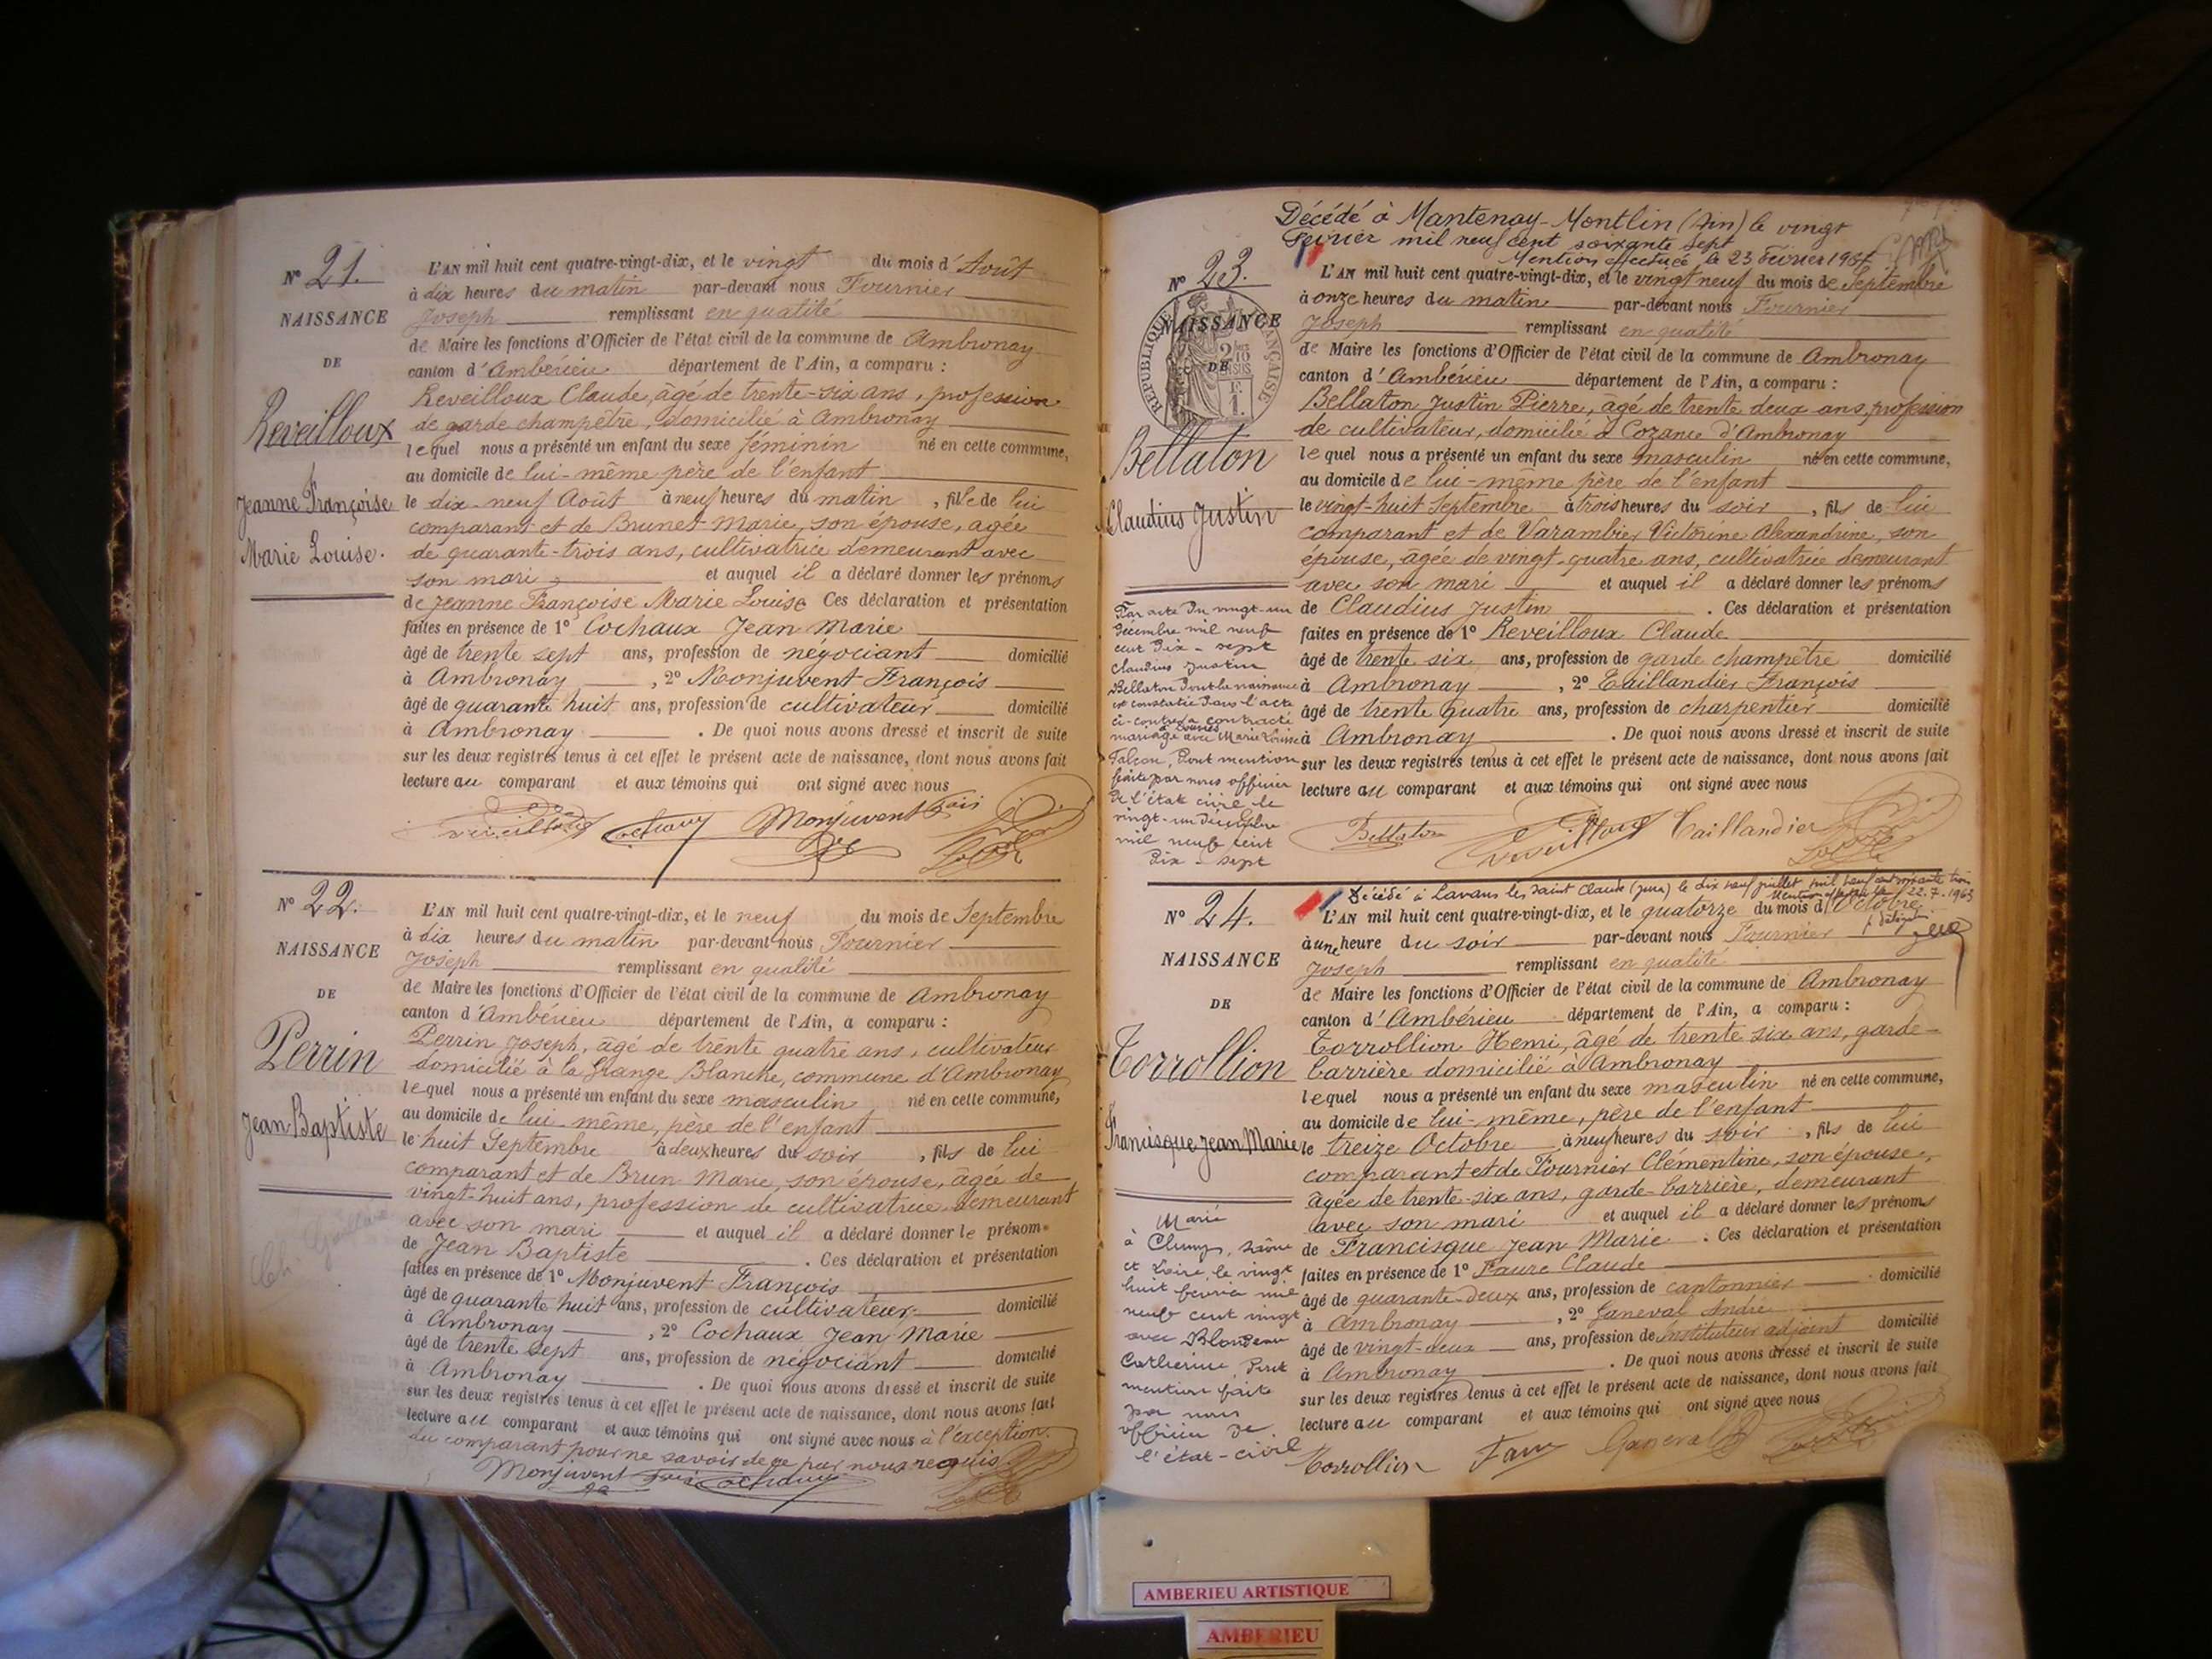 Nº 21.
NAISSANCE
DE
Reveilloux
Jeanne Françoise
Marie Louise.
L'AN mil huit cent quatre-vingt-dix, et le vingt du mois d'Août
à dix heures du matin par-devant nous Fournier
Joseph remplissant en qualité
de Maire les fonctions d'Officier de l'état civil de la commune de Ambronay
canton d'Ambérieu département de l'Ain, a comparu :
Reveilloux Claude, âgé de trente-six ans, profession
de garde champêtre, domicilié à Ambronay
lequel nous a présenté un enfant du sexe féminin né en cette commune,
au domicile de lui-même père de l'enfant
le dix-neuf Août à neuf heures du matin, fille de lui
comparant et de Brunet Marie, son épouse, agée
de quarante-trois ans, cultivatrice demeurant avec
son mari et auquel il a déclaré donner les prénoms
de Jeanne Françoise Marie Louise Ces déclaration et présentation
faites en présence de 1º Cochaux Jean Marie
âgé de trente sept ans, profession de négociant domicilié
à Ambronay, 2º Monjuvent François
âgé de quarante huit ans, profession de cultivateur domicilié
à Ambronay. De quoi nous avons dressé et inscrit de suite
sur les deux registres tenus à cet effet le présent acte de naissance, dont nous avons fait
lecture au comparant et aux témoins qui ont signé avec nous
Reveilloux Cochaux Monjuvent Fois
Nº 22.
NAISSANCE
DE
Perrin
Jean Baptiste
L'AN mil huit cent quatre-vingt-dix, et le neuf du mois de Septembre
à dix heures du matin par-devant nous Fournier
Joseph remplissant en qualité
de Maire les fonctions d'Officier de l'état civil de la commune de Ambronay
canton d'Ambérieu département de l'Ain, a comparu :
Perrin Joseph, âgé de trente quatre ans, cultivateur
domicilié à la Grange Blanche, commune d'Ambronay
lequel nous a présenté un enfant du sexe masculin né en cette commune,
au domicile de lui-même, père de l'enfant
le huit Septembre à deux heures du soir, fils de lui
comparant et de Brun Marie, son épouse, âgée de
vingt-huit ans, profession de cultivatrice demeurant
avec son mari et auquel il a déclaré donner le prénom
de Jean Baptiste. Ces déclaration et présentation
faites en présence de 1º Monjuvent François
âgé de quarante huit ans, profession de cultivateur domicilié
à Ambronay, 2º Cochaux Jean Marie
âgé de trente sept ans, profession de négociant domicilié
à Ambronay. De quoi nous avons dressé et inscrit de suite
sur les deux registres tenus à cet effet le présent acte de naissance, dont nous avons fait
lecture au comparant et aux témoins qui ont signé avec nous à l'exception
du comparant pour ne savoir de ce par nous requis
Monjuvent Fois Cochaux
Décédé à Mantenay-Montlin (Ain) le vingt
Février mil neuf cent soixante sept
Mention effectuée le 23 Février 1967
Nº 23.
NAISSANCE
DE
RÉPUBLIQUE FRANÇAISE
Bellaton
Claudius Justin
Par acte du vingt-un
Décembre mil neuf
cent Dix-sept
Claudius Justin
Bellaton dont la naissance
est constatée dans l'acte
ci-contre a contracté
mariage avec Marie Louise
Falcon, Dont mention
faite par nous officier
de l'état civil le
vingt-un Décembre
mil neuf cent
Dix-sept
L'AN mil huit cent quatre-vingt-dix, et le vingt neuf du mois de Septembre
à onze heures du matin par-devant nous Fournier
Joseph remplissant en qualité
de Maire les fonctions d'Officier de l'état civil de la commune de Ambronay
canton d'Ambérieu département de l'Ain, a comparu :
Bellaton Justin Pierre, âgé de trente deux ans, profession
de cultivateur, domicilié à Cozance d'Ambronay
lequel nous a présenté un enfant du sexe masculin né en cette commune,
au domicile de lui-même père de l'enfant
le vingt-huit Septembre à trois heures du soir, fils de lui
comparant et de Varambier Victorine Alexandrine, son
épouse, âgée de vingt-quatre ans, cultivatrice demeurant
avec son mari et auquel il a déclaré donner les prénoms
de Claudius Justin. Ces déclaration et présentation
faites en présence de 1º Reveilloux Claude
âgé de trente six ans, profession de garde champêtre domicilié
à Ambronay, 2º Taillandier François
âgé de trente quatre ans, profession de charpentier domicilié
à Ambronay. De quoi nous avons dressé et inscrit de suite
sur les deux registres tenus à cet effet le présent acte de naissance, dont nous avons fait
lecture au comparant et aux témoins qui ont signé avec nous
Bellaton Reveilloux Taillandier
Décédé à Lavans les Saint Claude (Jura) le dix neuf juillet mil neuf cent soixante trois
22.7.1963
Nº 24.
NAISSANCE
DE
Torrollion
Francisque Jean Marie
Marié
à Cluny, Saône
et Loire, le vingt
huit février mil
neuf cent vingt
avec Blondeau
Catherine, Dont
mention faite
par nous
officier de
l'état-civil
L'AN mil huit cent quatre-vingt-dix, et le quatorze du mois d'Octobre
à une heure du soir par-devant nous Fournier
Joseph remplissant en qualité
de Maire les fonctions d'Officier de l'état civil de la commune de Ambronay
canton d'Ambérieu département de l'Ain, a comparu :
Torrollion Henri, âgé de trente six ans, garde-
barrière domicilié à Ambronay
lequel nous a présenté un enfant du sexe masculin né en cette commune,
au domicile de lui-même, père de l'enfant
le treize Octobre à neuf heures du soir, fils de lui
comparant et de Fournier Clémentine, son épouse,
âgée de trente-six ans, garde-barrière, demeurant
avec son mari et auquel il a déclaré donner les prénoms
de Francisque Jean Marie. Ces déclaration et présentation
faites en présence de 1º Faure Claude
âgé de quarante-deux ans, profession de cantonnier domicilié
à Ambronay, 2º Ganeval André
âgé de vingt-deux ans, profession de Instituteur adjoint domicilié
à Ambronay. De quoi nous avons dressé et inscrit de suite
sur les deux registres tenus à cet effet le présent acte de naissance, dont nous avons fait
lecture au comparant et aux témoins qui ont signé avec nous
Torrollion Faure Ganeval
AMBERIEU ARTISTIQUE
AMBERIEU